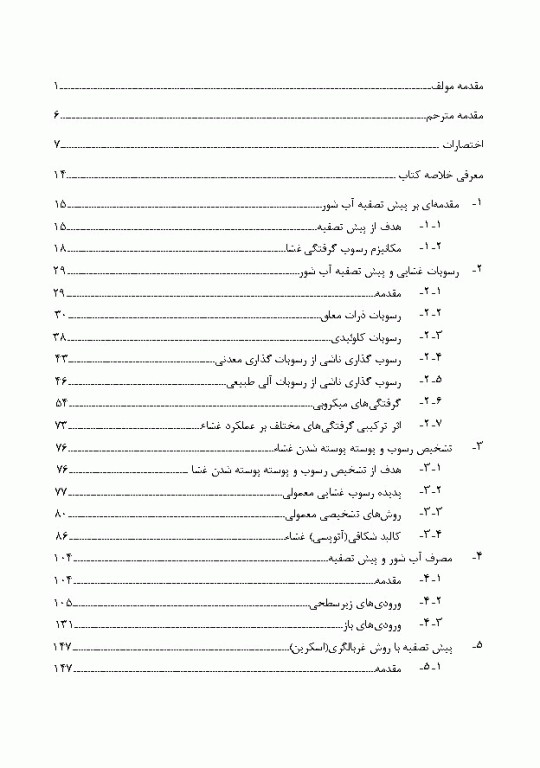 مقدمه مولف ۱
مقدمه مترجم ۶
اختصارات ۷
معرفی خلاصه کتاب ۱۴
۱- مقدمه‌ای بر پیش تصفیه آب شور ۱۵
۱-۱- هدف از پیش تصفیه ۱۵
۱-۲- مکانیزم رسوب گرفتگی غشا ۱۸
۲- رسوبات غشایی و پیش تصفیه آب شور ۲۹
۲-۱- مقدمه ۲۹
۲-۲- رسوبات ذرات معلق ۳۰
۲-۳- رسوبات کلوئیدی ۳۸
۲-۴- رسوب گذاری ناشی از رسوبات گذاری معدنی ۴۳
۲-۵- رسوب گذاری ناشی از رسوبات آلی طبیعی ۴۶
۲-۶- گرفتگی‌های میکروبی ۵۴
۲-۷- اثر ترکیبی گرفتگی‌های مختلف بر عملکرد غشاء ۷۳
۳- تشخیص رسوب و پوسته پوسته شدن غشاء ۷۶
۳-۱- هدف از تشخیص رسوب و پوسته پوسته شدن غشا ۷۶
۳-۲- پدیده رسوب غشایی معمولی ۷۷
۳-۳- روش‌های تشخیصی معمولی ۸۰
۳-۴- کالبد شکافی(آتوپسی) غشاء ۸۶
۴- مصرف آب شور و پیش تصفیه ۱۰۴
۴-۱- مقدمه ۱۰۴
۴-۲- ورودی‌های زیرسطحی ۱۰۵
۴-۳- ورودی‌های باز ۱۳۱
۵- پیش تصفیه با روش غربالگری(اسکرین) ۱۴۷
۵-۱- مقدمه ۱۴۷